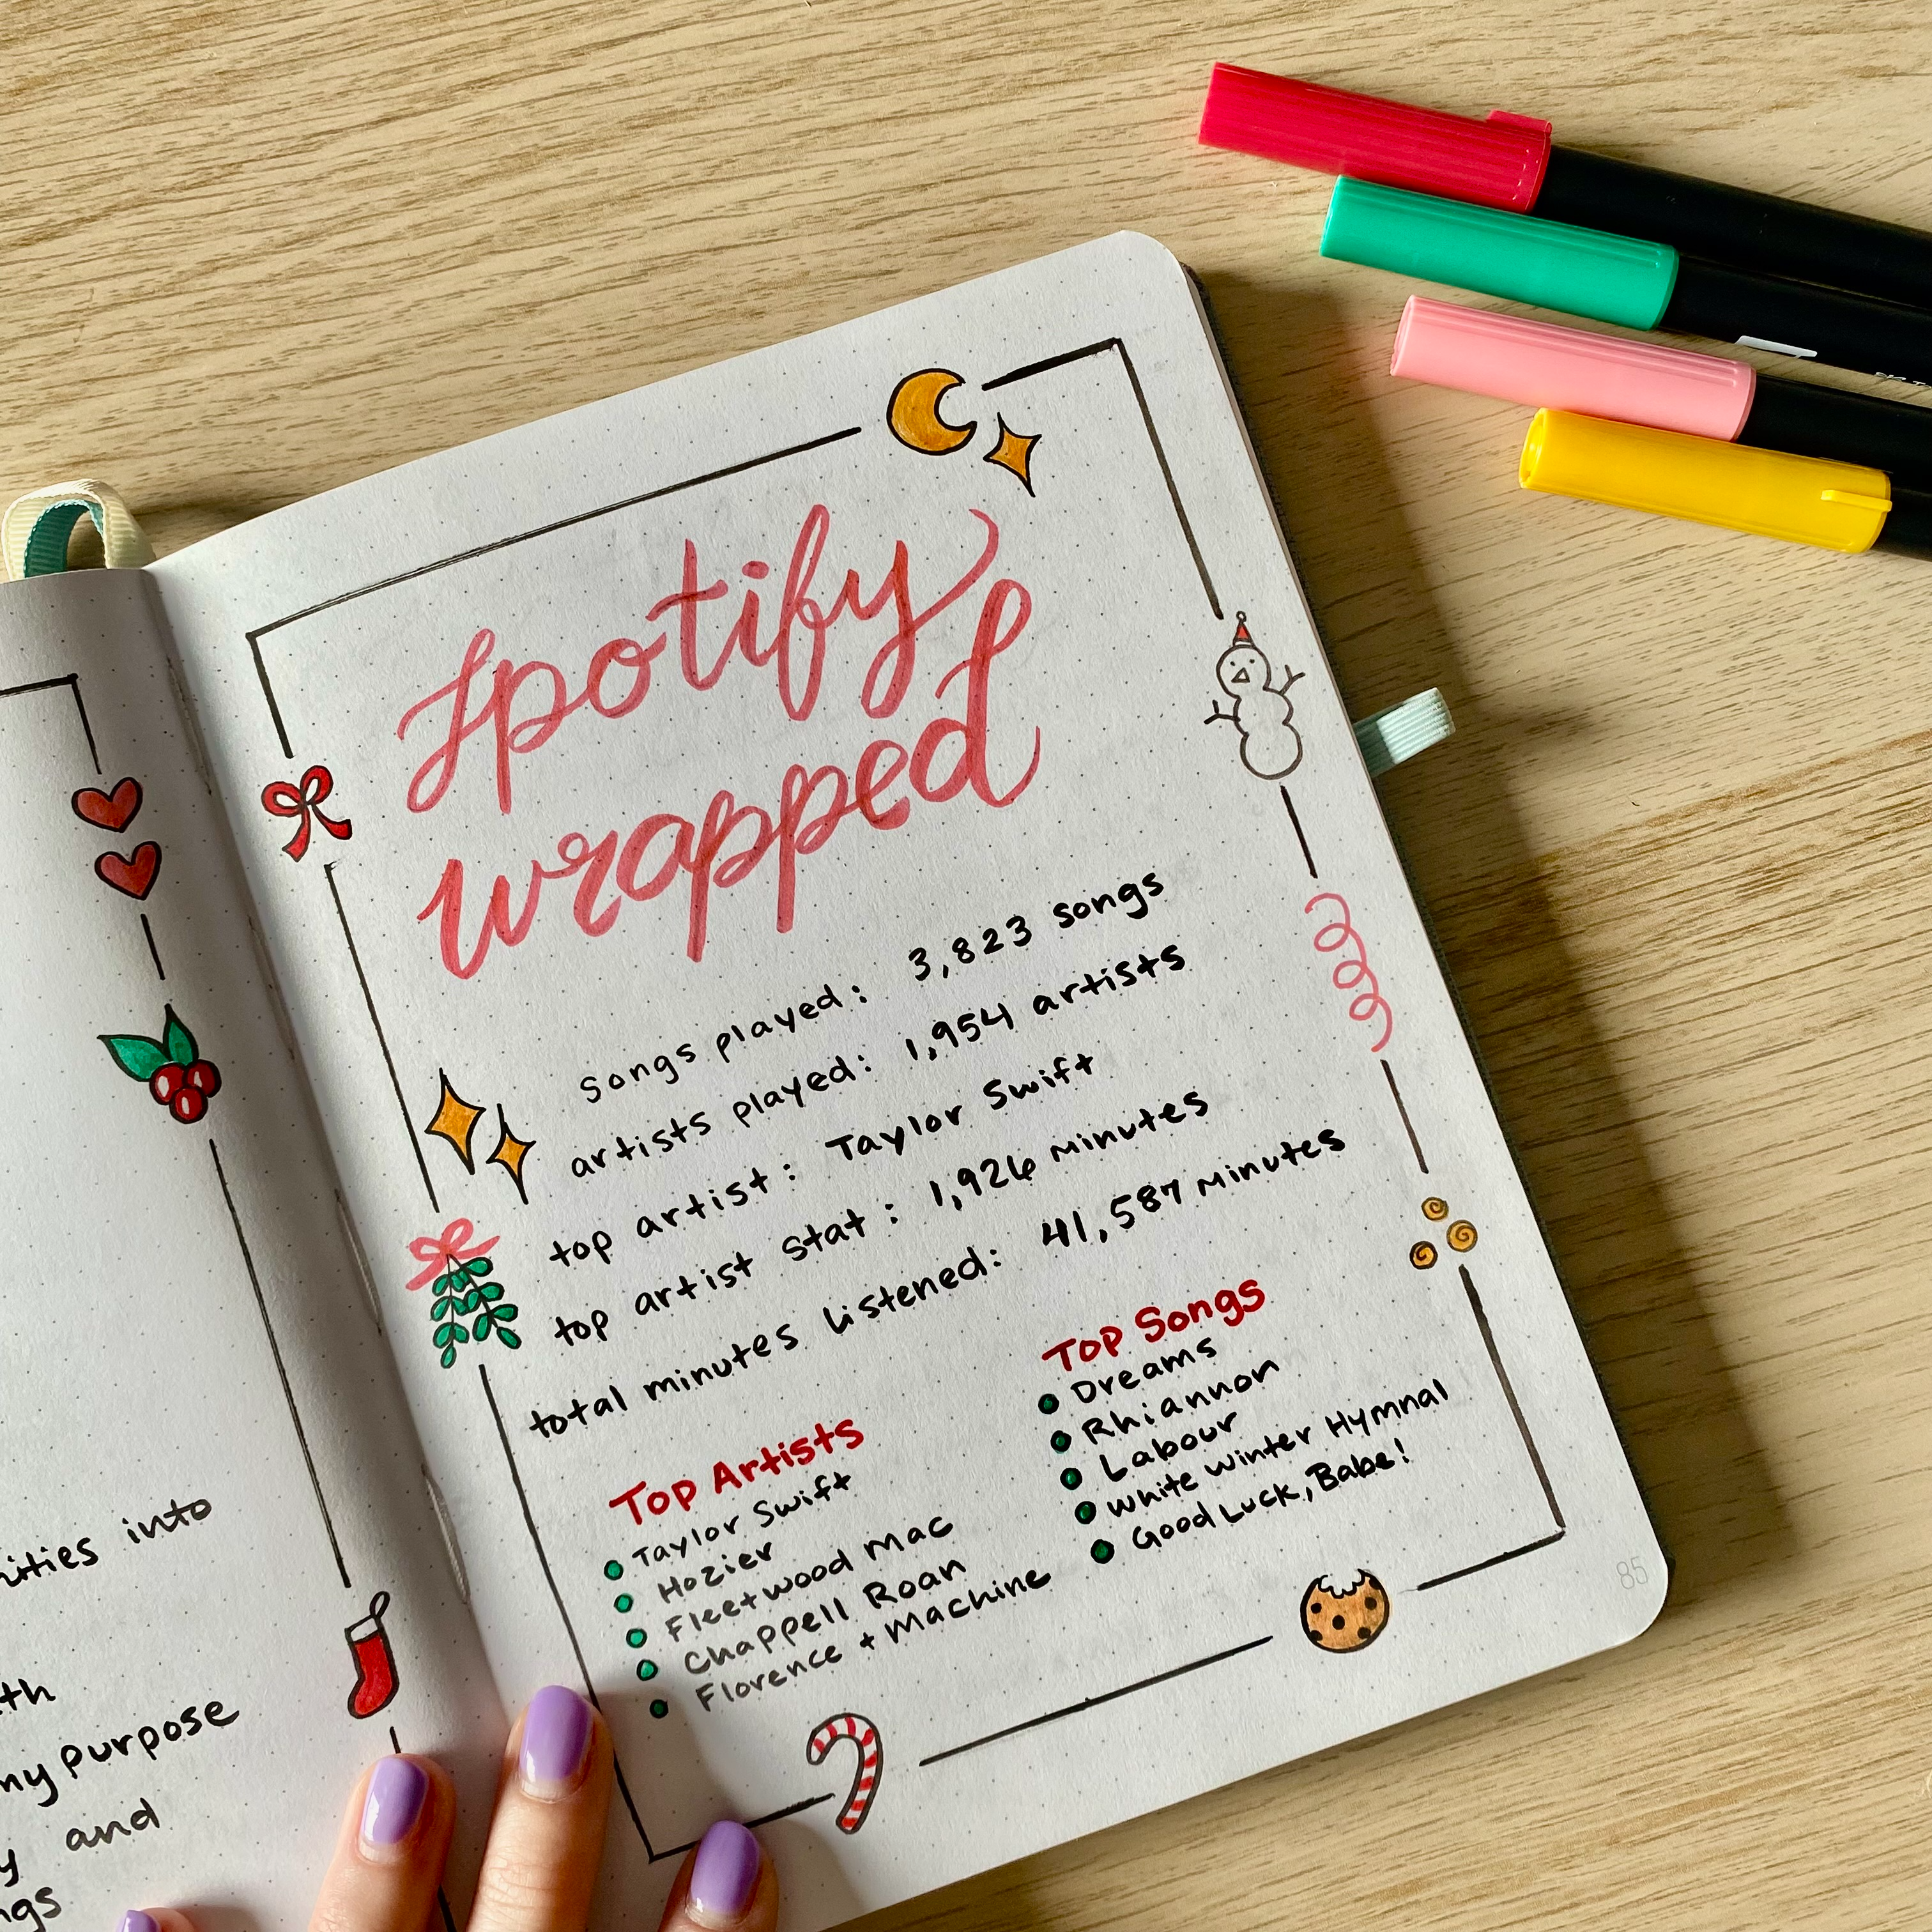 ities into
th
my purpose
y and
ngs
Spotify
wrapped
songs played: 3,823 songs
artists played: 1,954 artists
top artist: Taylor Swift
top artist stat: 1,926 minutes
total minutes listened: 41,587 minutes
Top Artists
Taylor Swift
Hozier
Fleetwood Mac
Chappell Roan
Florence + Machine
Top Songs
Dreams
Rhiannon
Labour
White Winter Hymnal
Good Luck, Babe!
85